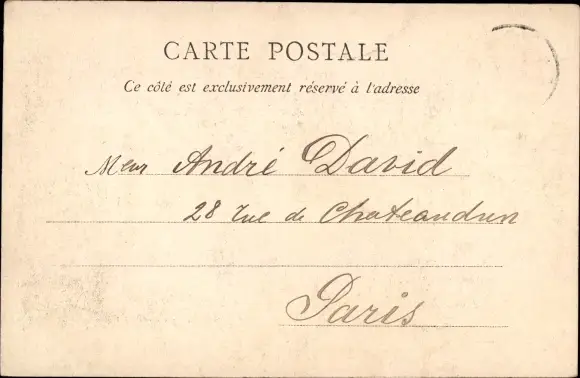 CARTE POSTALE
Ce côté est exclusivement réservé à l'adresse
Meur André David
28 rue de Chateaudun
Paris